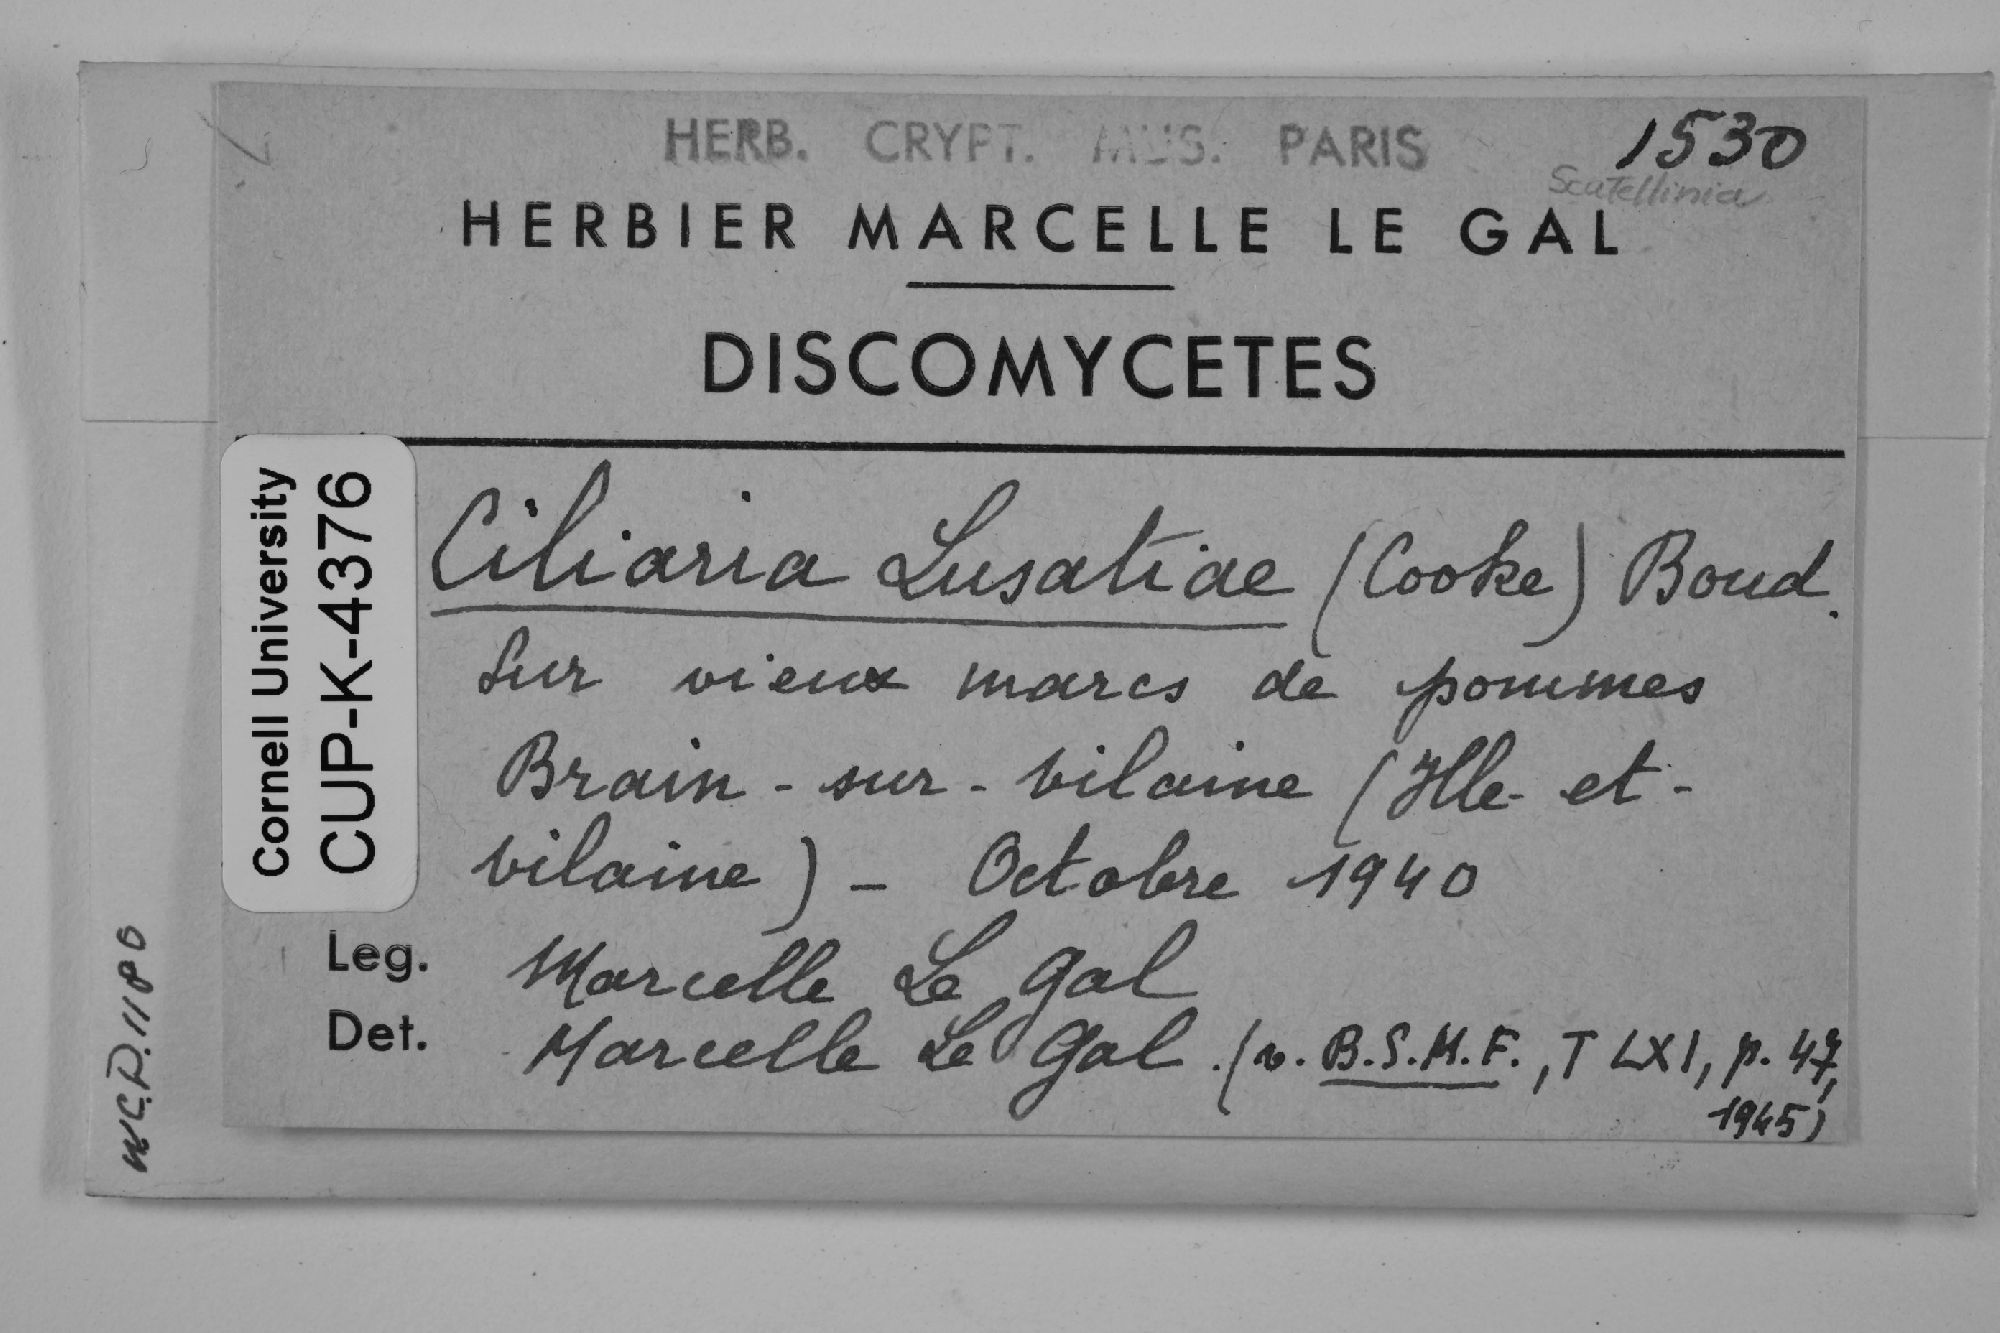 HERB. CRYPT. MUS. PARIS
1530
Scutellinia
HERBIER MARCELLE LE GAL
DISCOMYCETES
Cornell University
CUP-K-4376
Ciliaria Lusatiae (Cooke) Boud.
Sur vieux marcs de pommes
Brain-sur-Vilaine (Ille-et-
Vilaine) - Octobre 1940
Leg. Marcelle Le Gal
Det. Marcelle Le Gal. (v. B.S.M.F., T LXI, p. 47,
1945)